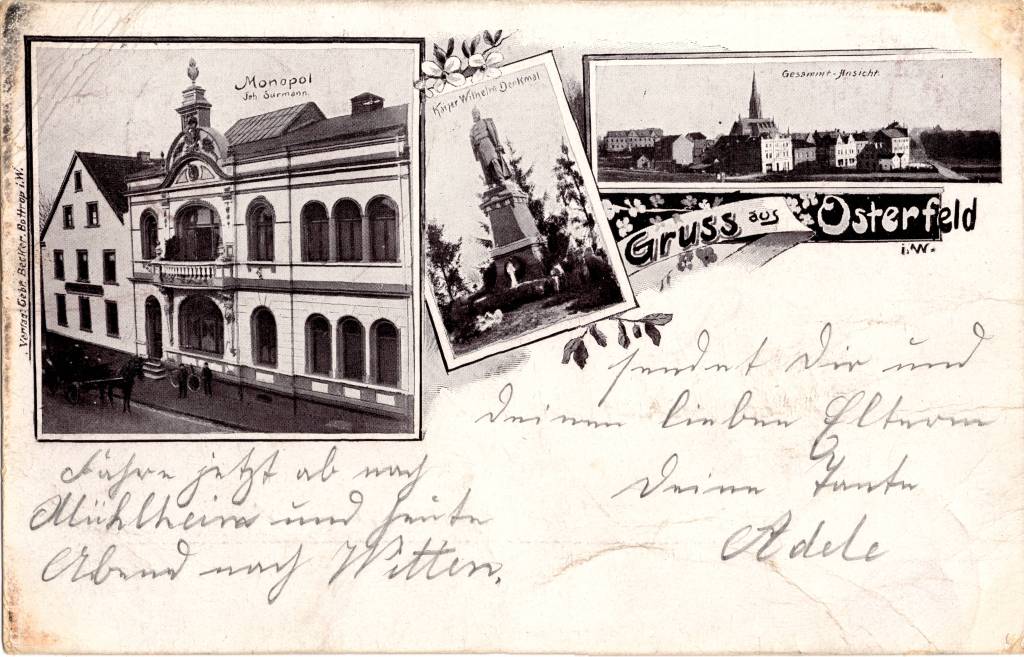 Monopol
Joh. Surmann.
Kaiser Wilhelm Denkmal
Gesammt-Ansicht.
Gruss aus Osterfeld
i.W.
Verlag: Gebr. Becker, Bottrop i.W.
sendet Dir und
Deinen lieben Eltern
Deine Tante
Adele
Fahre jetzt ab nach
Mühlheim und heute
Abend nach Witten.